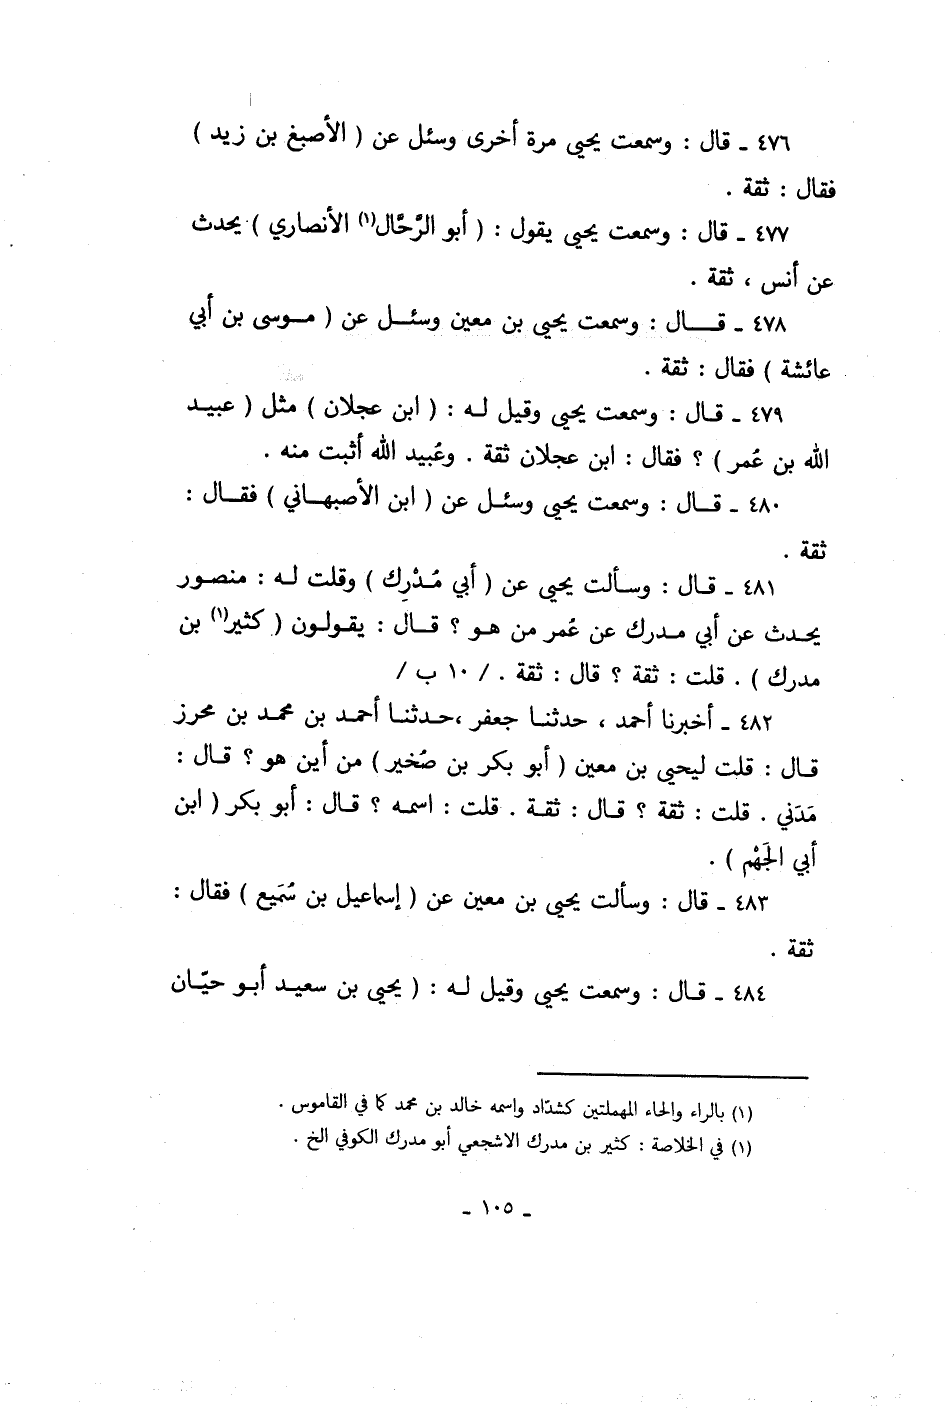 ٤٧٦ ـ قال : وسمعت يحيى مرة أخرى وسئل عن ( الأصبغ بن زيد )
فقال : ثقة .
٤٧٧ ـ قال : وسمعت يحيى يقول : ( أبو الرَّحَّال(١) الأنصاري ) يحدث
عن أنس ، ثقة .
٤٧٨ ـ قـــال : وسمعت يحيى بن معين وسئــل عن ( مــوسى بن أبي
عائشة ) فقال : ثقة .
٤٧٩ ـ قـال : وسمعت يحيى وقيل لـه : ( ابن عجلان ) مثل ( عبيـد
الله بن عُمر ) ؟ فقال : ابن عجلان ثقة . وعُبيد الله أثبت منه .
٤٨٠ ـ قــال : وسمعت يحيى وسئـل عن ( ابن الأصبهــاني ) فقــال :
ثقة .
٤٨١ ـ قـال : وسـألت يحيى عن ( أبي مُـدْرِك ) وقلت لـه : منصـور
يحـدث عن أبي مـدرك عن عُمر من هـو ؟ قـال : يقـولـون ( كثير(١) بن
مدرك ) . قلت : ثقة ؟ قال : ثقة . / ١٠ ب /
٤٨٢ ـ أخبرنا أحمد ، حدثنـا جعفر ،حـدثنـا أحمـد بن محمـد بن محرز
قـال : قلت ليحيى بن معين ( أبو بكر بن صُخير ) من أين هو ؟ قـال :
مَدَني . قلت : ثقة ؟ قـال : ثقـة . قلت : اسمـه ؟ قـال : أبو بكر ( ابن
أبي الجَهْم ) .
٤٨٣ ـ قال : وسألت يحيى بن معين عن ( إسماعيل بن سُمَيع ) فقال :
ثقة .
٤٨٤ ـ قـال : وسمعت يحيى وقيل لـه : ( يحيى بن سعيـد أبـو حيّـان
(١) بالراء والحاء المهملتين كشدّاد واسمه خالد بن محمد كما في القاموس .
(١) في الخلاصة : كثير بن مدرك الاشجعي أبو مدرك الكوفي الخ .
ـ ١٠٥ ـ